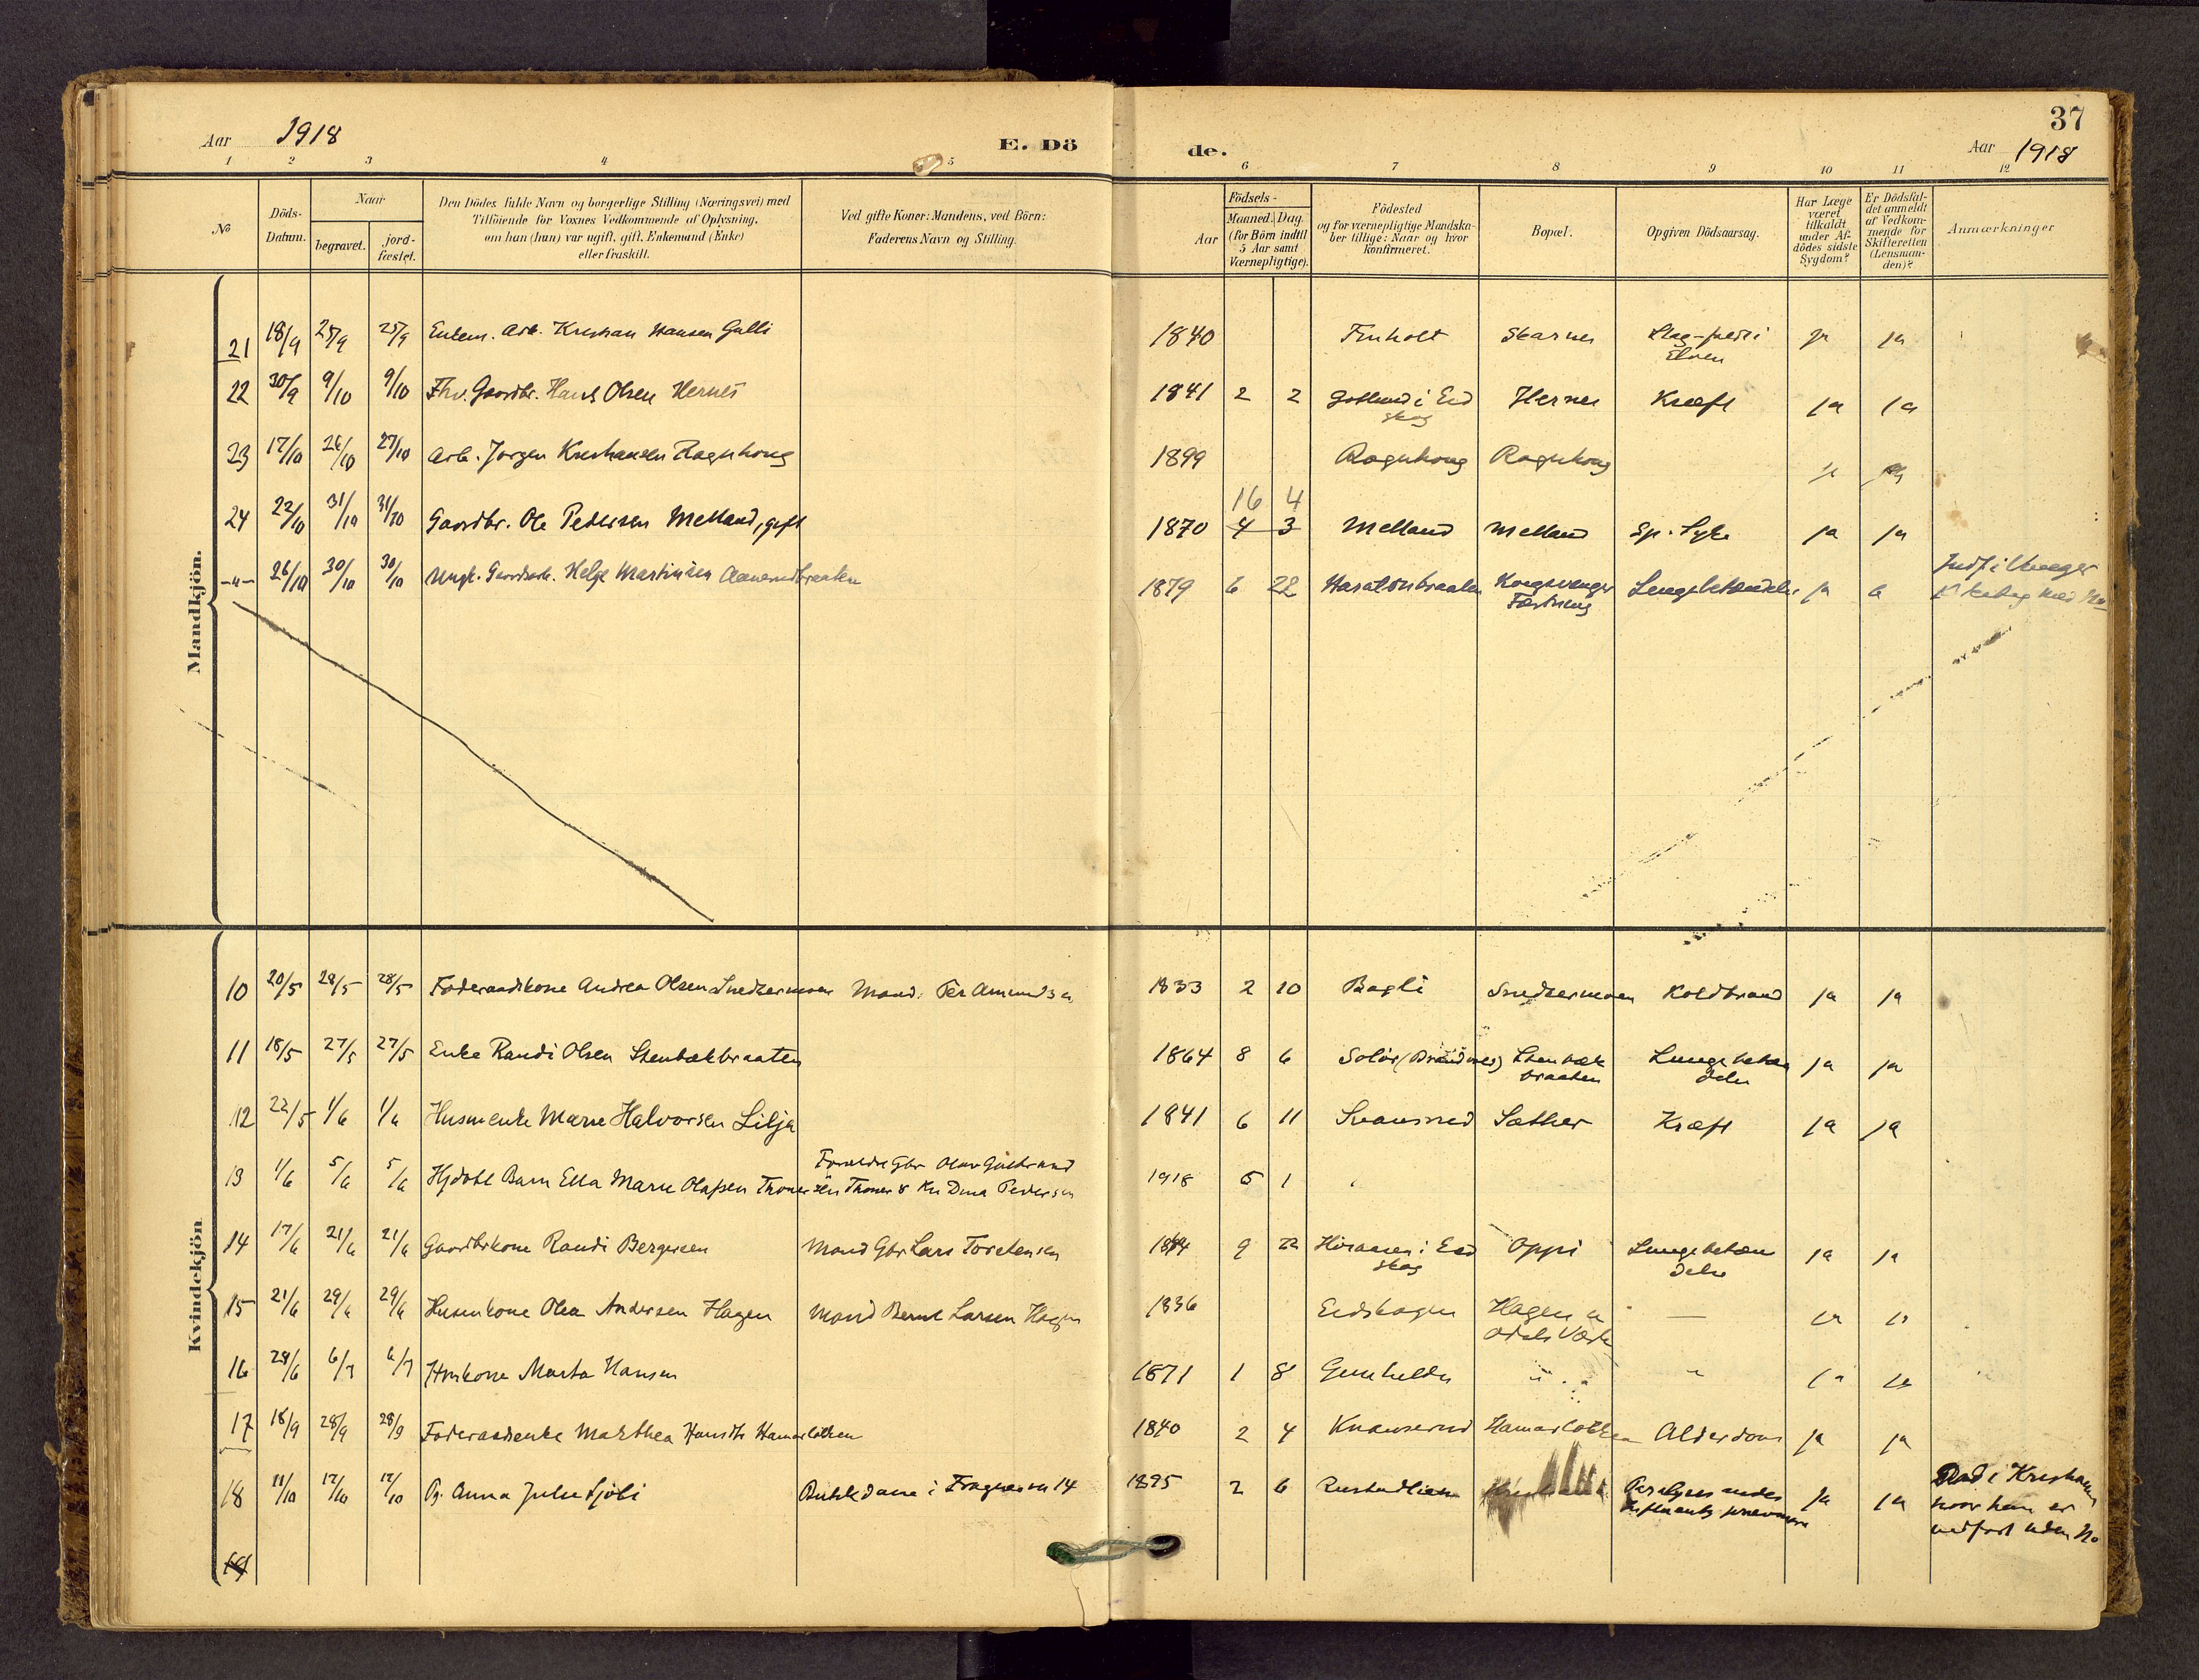 37
Aar 1918 E. Dö de. Aar 1918
1 2 3 4 5 6 7 8 9 10 11 12
№
Döds-
Datum.
Naar
begravet.
jord-
fæstet.
Den Dödes fulde Navn og borgerlige Stilling (Næringsvei) med
Tilföiende for Voxnes Vedkommende af Oplysning,
om han (hun) var ugift, gift, Enkemand (Enke)
eller fraskilt.
Ved gifte Koner: Mandens, ved Börn:
Faderens Navn og Stilling.
Födsels-
Aar
Maaned. Dag.
(for Börn indtil
5 Aar samt
Værnepligtige).
Födested
og for værnepligtige Mandska-
ber tillige: Naar og hvor
konfirmeret.
Bopæl.
Opgiven Dödsaarsag.
Har Læge
været
tilkaldt
under Af-
dödes sidste
Sygdom?
Er Dödsfal-
det anmeldt
af Vedkom-
mende for
Skifteretten
(Lensman-
den)?
Anmærkninger
Mandkjön.
21 18/9 25/9 25/9 Enkem. Arb. Kristian Hansen Galli 1840 Finholt Skarnes ja ja
Elven
22 30/9 9/10 9/10 Fhv. Gaardbr. Hans Olsen Hernes 1841 2 2 i Eid Hernes Kræft ja ja
skog
23 17/10 26/10 27/10 Arb. Jørgen Kristiansen Ragnhaug 1899 Ragnhaug Ragnhaug ja ja
16 4
24 22/10 31/10 31/10 Gaardbr. Ole Pedersen Melland, gift 1870 4 3 Melland Melland Sp. Syke ja ja
-"- 26/10 30/10 30/10 Ungk. Gaardsarb. Helge Martinsen Aanerudbraaten 1879 6 22 Haraldsbraaten Kongsvinger Lungebetændelse ja ja
Fæstning
Kvindekjön
10 20/5 28/5 28/5 Föderaadskone Andrea Olsen Snedkermoen Mand: Per Amunds n 1833 2 10 Bogli Snedkermoen Koldbrand ja ja
11 18/5 27/5 27/5 Enke Randi Olsen Stenbækbraaten 1864 8 6 Solör (Brandval) Stenbæk Lungebetæn ja ja
braaten delse
12 22/5 1/6 1/6 Husmenke Marie Halvorsen Lilja 1841 6 11 Svansrud Sæther Kræft ja ja
Forældre Gbr. Olav Gulbrand
13 1/6 5/6 5/6 Hjdøbt Barn Ella Marie Olafsen Thoner sen Thoner & Ku Dina Pedersen 1918 5 1
14 17/6 21/6 21/6 Gaardbrkone Randi Bergersen Mand Gbr Lars Torstensen 1844 9 22 i Eid Oppi Lungebetæn ja ja
skog delse
15 21/6 29/6 29/6 Husmkone Olea Andersen Hagen Mand Bernt Larsen Hagen 1836 Eidskogen Hagen u — ja ja
Odals Værk
16 28/6 6/7 6/7 Hmkone Marta Hansen 1871 1 8 " " ja ja
17 18/9 28/9 28/9 Föderaadsenke Marthea Hansdtr Hamarlökken 1840 2 4 Knapserud Hamarlökken Alderdom ja ja
18 11/10 17/10 17/10 Pg. Anna Julie Sjöli Butikdame i Fragnesvn 14 1895 2 6 Rustadlien ja ja
Död i Kristiania
hvor hun er
indført uden No
19